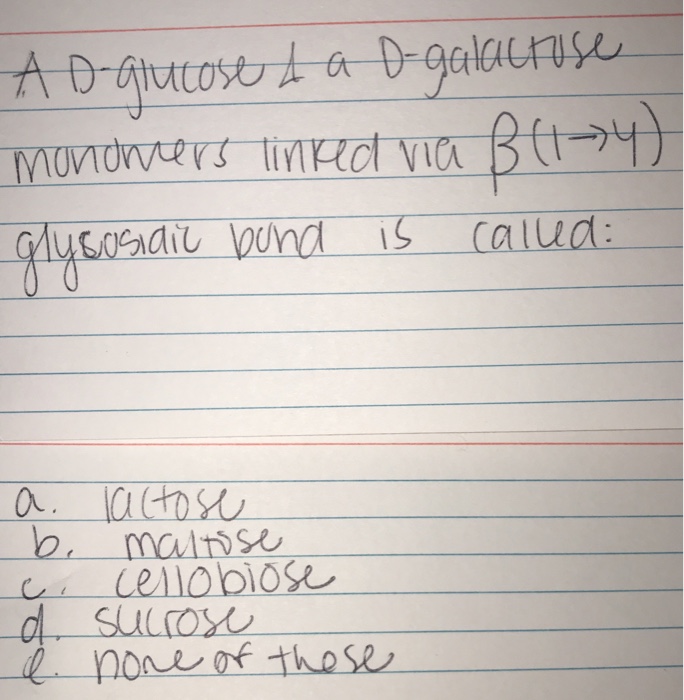 A D-glucose & a D-galactose
monomers linked via β(1→4)
glysosidic bond is called:
a. lactose
b. maltose
c. cellobiose
d. sucrose
e. none of these